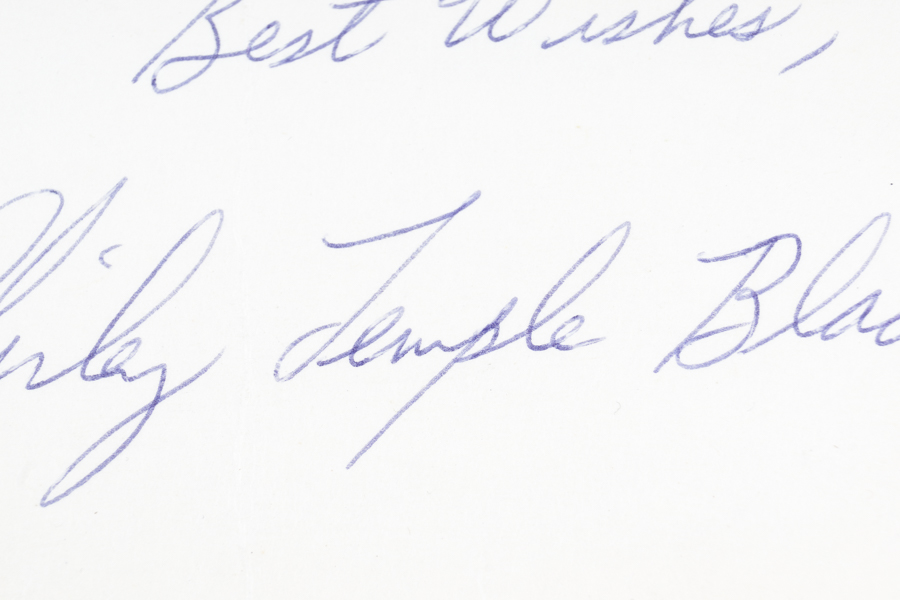 Best Wishes,
Shirley Temple Black